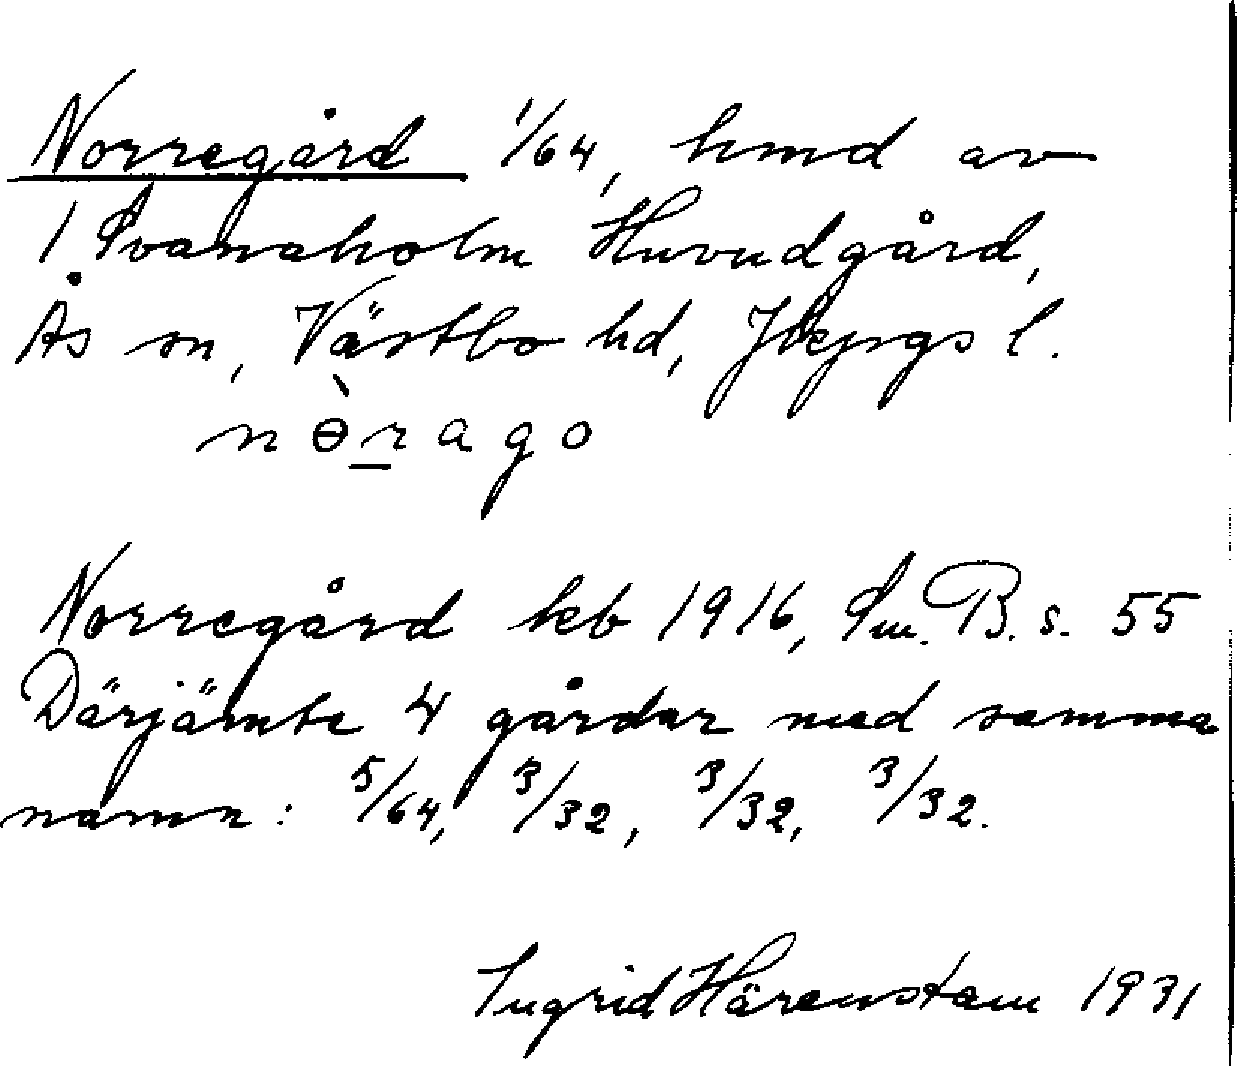 Norregård 1/64, hmd av
1 Svanaholm Huvudgård,
Ås sn, Västbo hd, Jkpgs l.
nɵ̀ṟago
Norregård kb 1916, Sm. B. s. 55
Därjämte 4 gårdar med samma
namn: 5/64, 3/32, 3/32, 3/32.
Ingrid Härenstam 1931